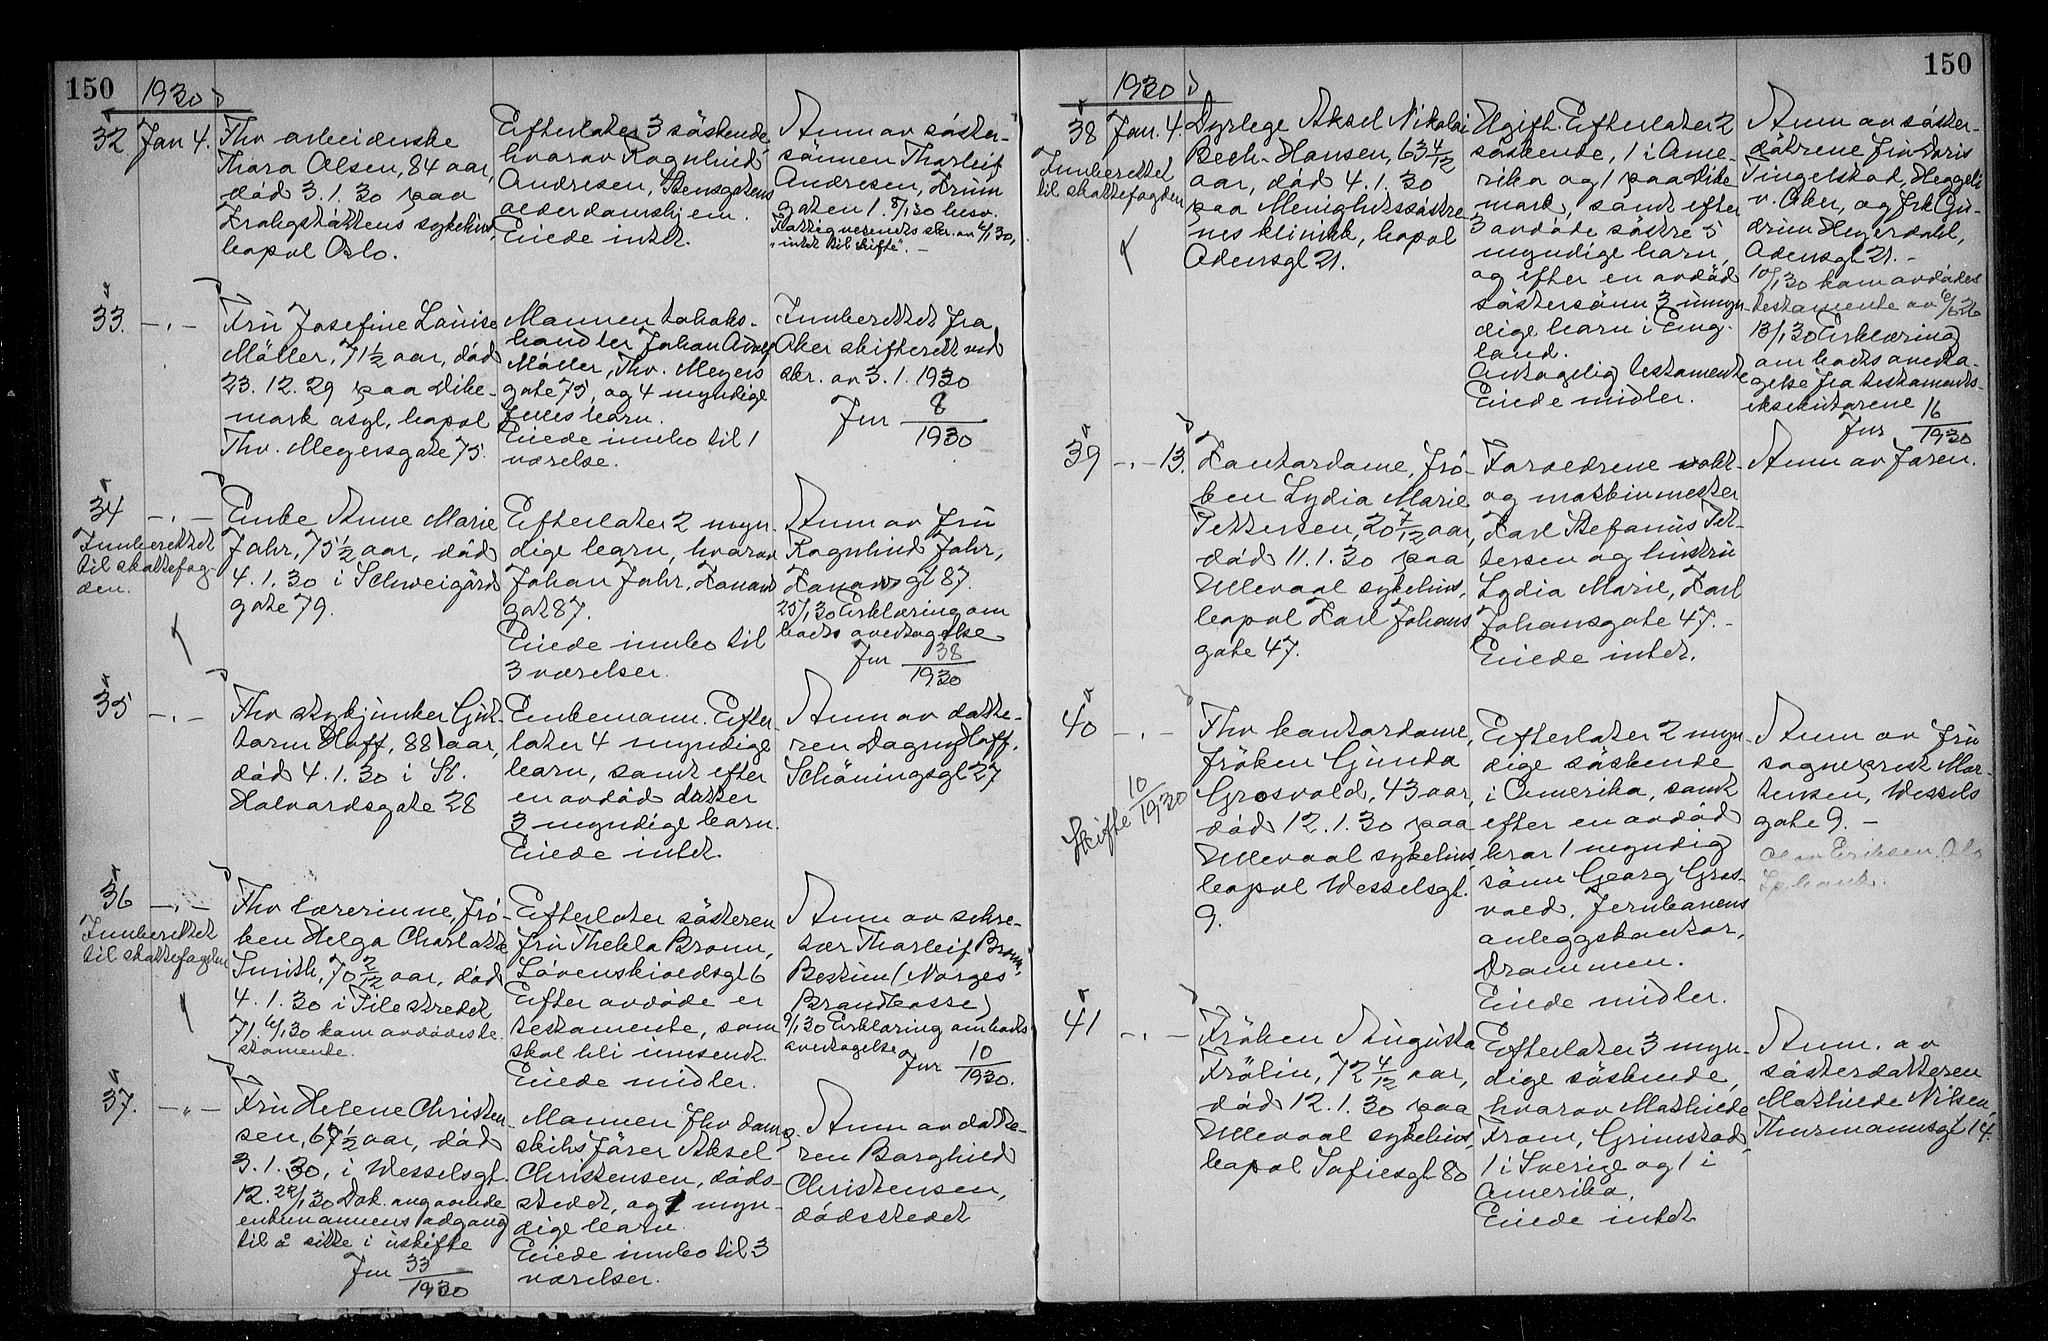 150
1930
32 Jan 4.
Thv arbeiderske
Thora Olsen, 84 aar,
død 3.1.30 paa
Krohgstøttens sykehus,
bopæl Oslo.
Efterlater 3 søskende
hvorav Ragnhild
Andresen, Stensgatens
alderdomshjem.
Eiede intet.
Anm av søster-
sønnen Thorleif
Andresen,
gaten 1. 8/1 30 besv.
Fattigvesenets skr. av 6/1 30,
"intet til skifte". -
33. - " -
Fru Josefine Louise
Møller, 71 1/2 aar, død
23.12.29 paa Dike-
mark asyl, bopæl
Thv. Meyersgate 75.
Mannen tobaks-
handler Johan Adolf
Møller, Thv. Meyers
gate 75, og 4 myndige
felles barn.
Eiede innbo til 1
værelse.
Innberettet fra
Aker skifterett ved
skr. av 3.1.1930
Jnr 8/1930
34 - " -
Innberettet
til skattefog-
den.
Enke Anne Marie
Jahr, 75 1/2 aar, død
4.1.30 i Schweigård
gate 79.
Efterlater 2 myn-
dige barn, hvorav
Johan Jahr, Kanaw
gat 87.
Eiede innbo til
3 værelser.
Anm av fru
Ragnhild Jahr,
Kanaw gt 87.
25/1 30 Erklæring om
boets overtagelse
Jnr 38/1930
35 - " -
Thv stykjunker Gut-
torm Hoff, 88 aar,
død 4.1.30 i St.
Halvardsgate 28
Enkemann. Efter-
later 4 myndige
barn, samt efter
en avdød datter
3 myndige barn.
Eiede intet.
Anm av datte-
ren Dagny Hoff,
Schøningsgt 27
36 - " -
Innberettet
til skattefogden
Thv lærerinne, frø-
ken Helga Charlotte
Smith, 70 2/12 aar, død
4.1.30 i Pilestredet
71. 6/1 30 kom avdødes te-
stamente.
Efterlater søsteren
fru Thekla Bronn,
Løvenskioldsgt 6
Efter avdøde er
testamente, som
skal bli innsendt.
Eiede midler.
Anm av sekre-
tær Thorleif Bronn,
Bestum (Norges
Brandkasse)
9/1 30 Erklæring om boets
overtagelse
Jnr 10/1930.
37. - " -
Fru Helene Christen-
sen, 67 1/2 aar, død
3.1.30, i Wesselsgt.
12. 22/1 30 Dok. angaaende
enkemannens adgang
til å sitte i uskifte
Jnr 33/1930
Mannen fhv damp-
skibsfører Aksel
Christensen, døds-
stedet, og 1 myn-
dige barn.
Eiede innbo til 3
værelser.
Anm av datte-
ren Borghild
Christensen,
dødsstedet
150
1930
38 Jan. 4.
Innberettet
til skattefogden
Dyrlege Aksel Nikolai
Bech-Hansen, 63 4/12
aar, død 4.1.30
paa Menighetssøstre-
nes klinikk, bopæl
Odensgt 21.
Ugift. Efterlater 2
søskende, 1 i Ame-
rika og 1 paa Dike-
mark, samt efter
3 avdøde søstre 5
myndige barn,
og efter en avdød
søstersønn 3 umyn-
dige barn i Eng-
land.
Antagelig testamente
Eiede midler.
Anm av søster-
døtrene fru Doris
Tingelstad, Heggeli
v. Aker, og frk Gu-
drun Heyerdahl,
Odensgt 21. -
10/1 30 kom avdødes
testamente av 6/6 26
13/1 30 Erklæring
om boets overta-
gelse fra testaments-
eksekutorene
Jnr 16/1930
39 - " - 13.
Kontordame, frø-
ken Lydia Marie
Pettersen, 20 7/12 aar,
død 11.1.30 paa
Ullevaal sykehus,
bopæl Karl Johans
gate 47.
Foreldrene vakt-
og maskinmester
Karl Stefanus Pet-
tersen og hustru
Lydia Marie, Karl
Johansgate 47. -
Eiede intet.
Anm av faren.
40 - " -
Skifte 10/1930
Thv kontordame,
frøken Gunda
Grosvold, 43 aar,
død 12.1.30 paa
Ullevaal sykehus,
bopæl Wesselsgt.
9.
Efterlater 2 myn-
dige søskende
i Amerika, samt
efter en avdød
bror 1 myndig
sønn Georg Gros-
vold, Jernbanens
anleggskontor,
Drammen.
Eiede midler.
Anm av fru
sogneprest Mor-
tensen, Wessels
gate 9. -
Eriksen, Oslo
Sp.bank.
41 - " -
Frøken Augusta
Frölin, 72 4/12 aar,
død 12.1.30 paa
Ullevaal sykehus,
bopæl Sofiesgt 80
Efterlater 3 myn-
dige søskende,
hvorav Mathilde
From, Grimstad,
1 i Sverige og 1 i
Amerika.
Eiede intet
Anm. av
søsterdatteren
Mathilde Nilsen,
Thurmannsgt 14.